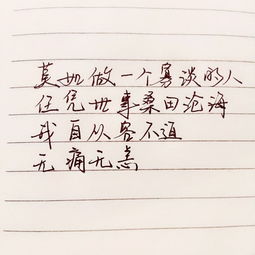 莫如做一个寡淡的人
任凭世事桑田沧海
我自从容不迫
无痛无恙